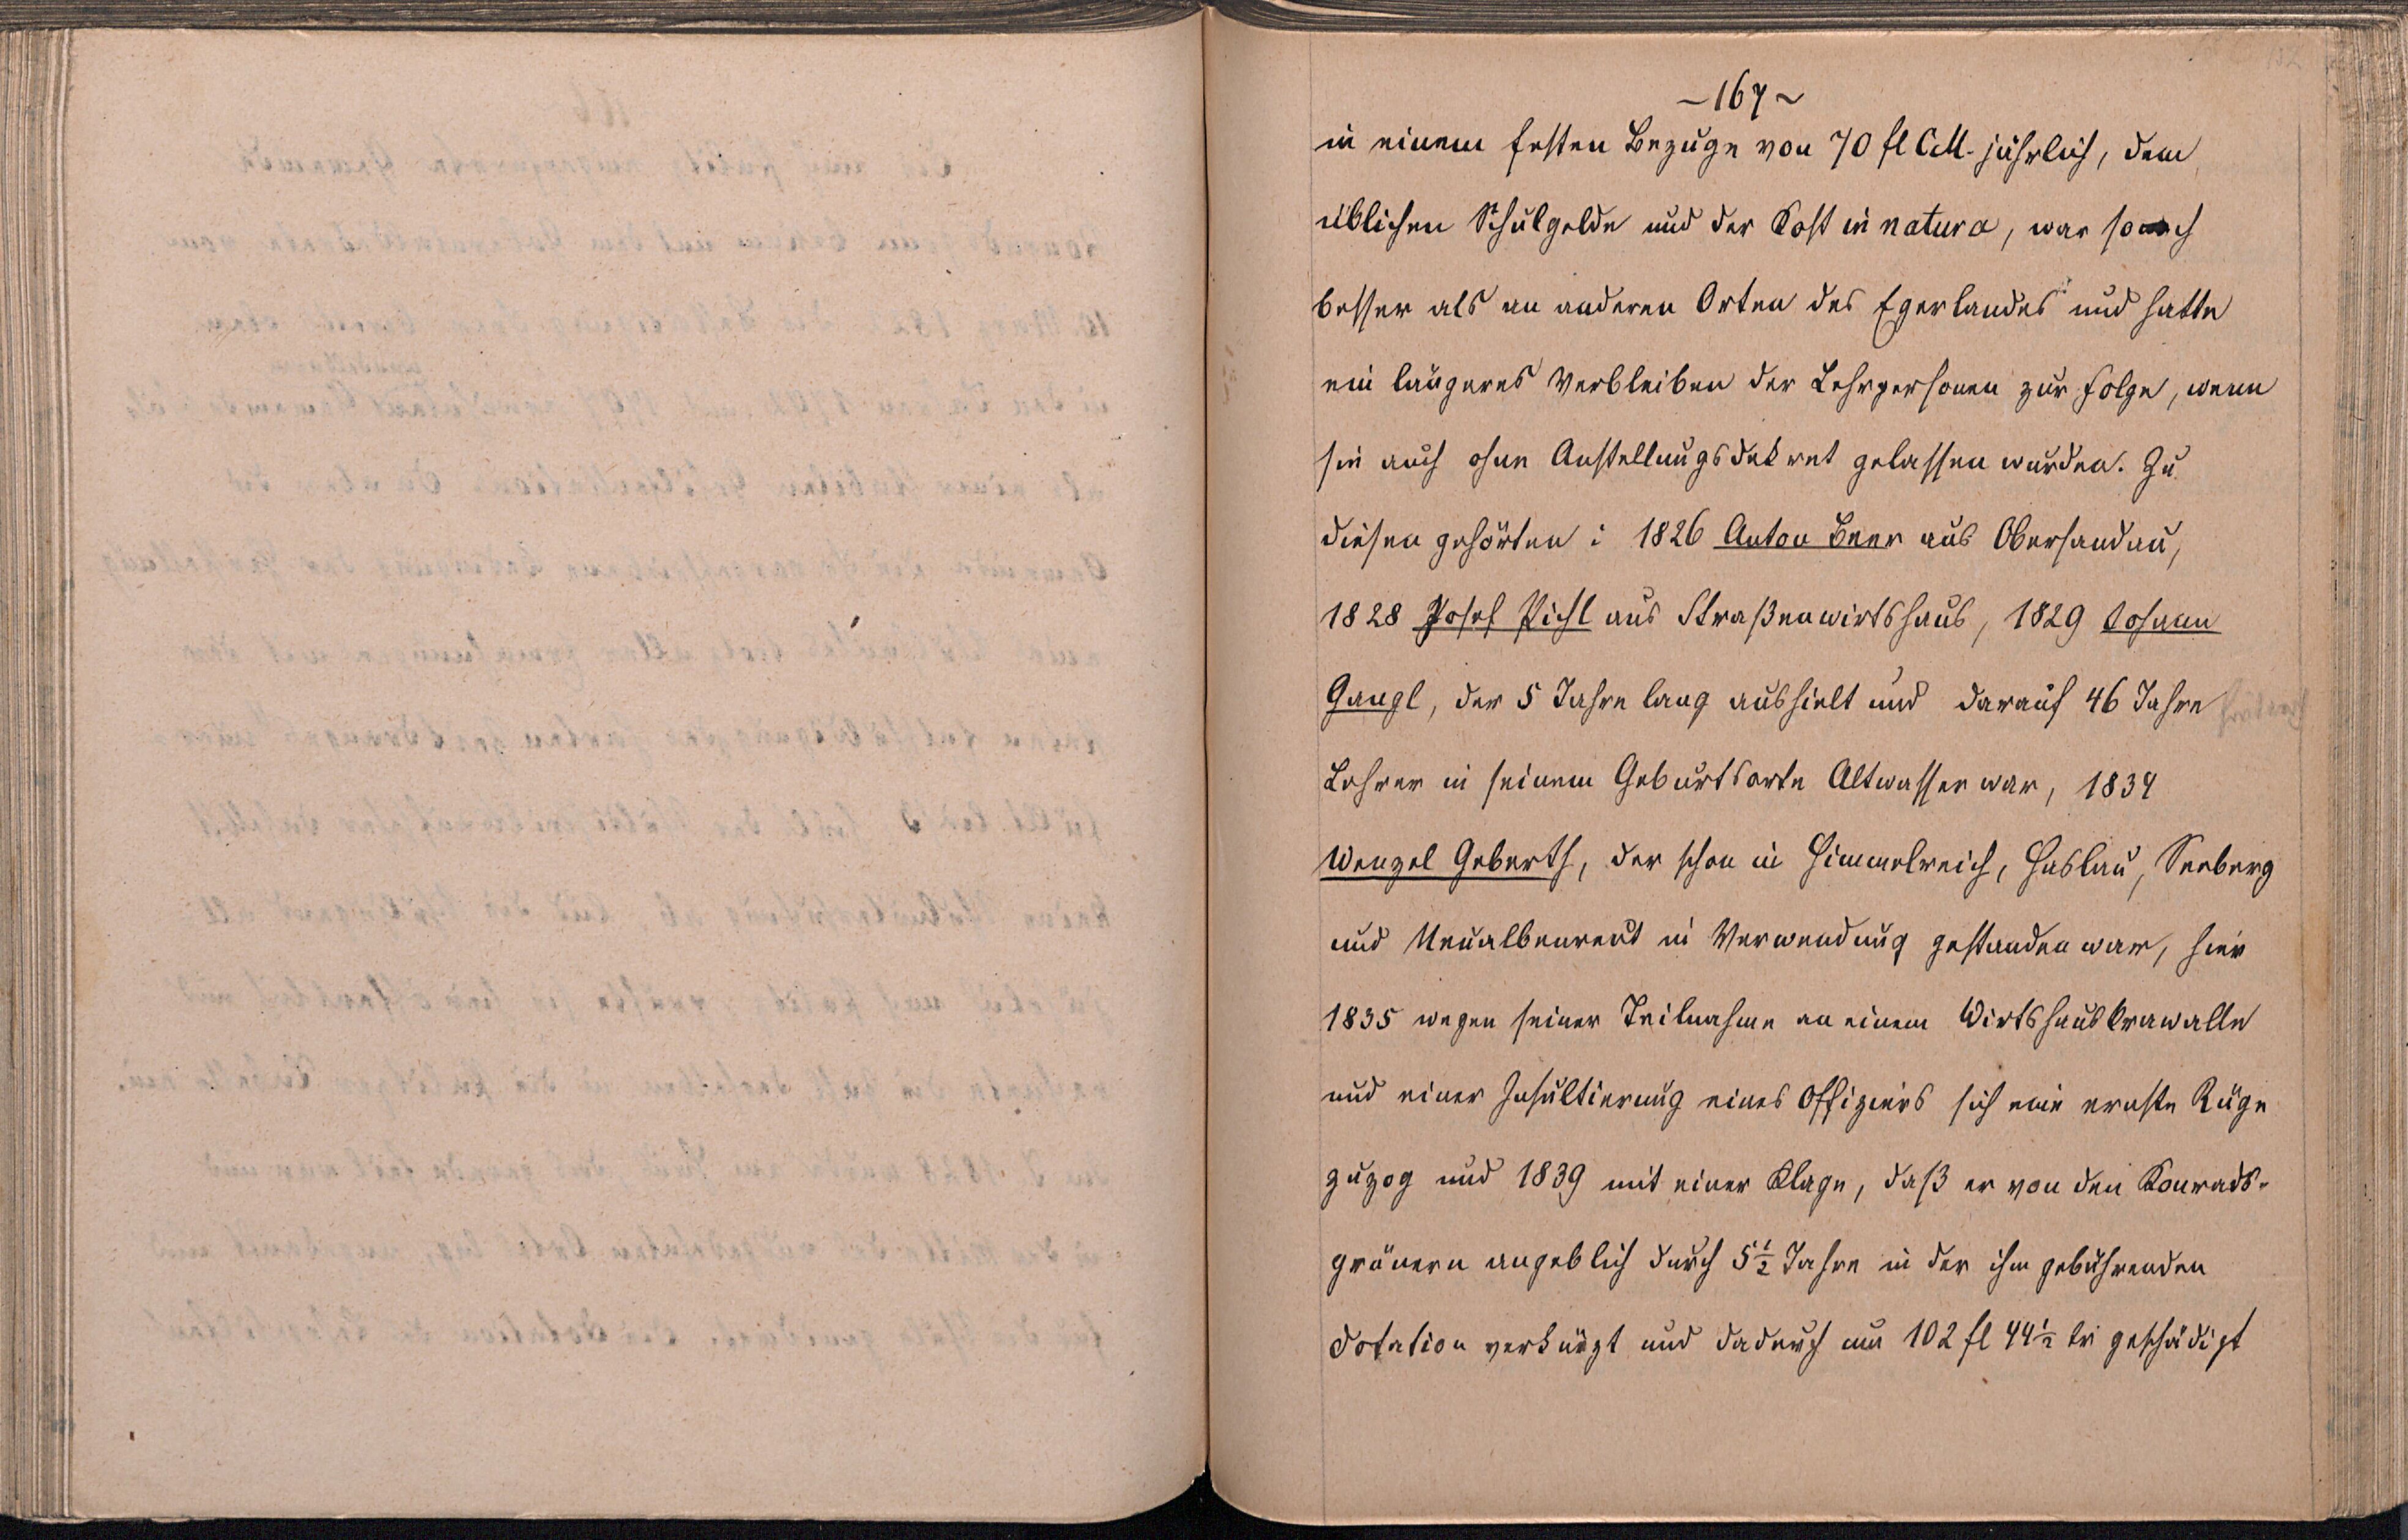 ~ 167 ~
in einem festen Bezuge von 70 fl CM. jährlich, dem
üblichen Schulgelde und der Kost in natura, war
besser als an anderen Orten des Egerlandes und hatte
ein längeres Verbleiben der Lehrpersonen zur Folge, wenn
sie auch ohne Anstellungsdekret gelassen wurden. Zu
diesen gehörten: 1826 Anton Beer aus Obersandau,
1828 Josef Pichl aus Straßenwirtshaus, 1829 Johann
Gangl, der 5 Jahre lang aushielt und darauf 46 Jahre
Lehrer in seinem Geburtsorte Altwasser war, 1834
Wenzel Geberth, der schon in Himmelreich, Haslau, Seeberg
und Neualbenreut in Verwendung gestanden war, hier
1835 wegen seiner Teilnahme an einem Wirtshauskrawalle
und einer Insultierung eines Offiziers sich eine ernste Rüge
zuzog und 1839 mit einer Klage, daß er von den Konrads-
grünern angeblich durch 5½ Jahre in der ihm gebührenden
Dotation verkürzt und dadurch um 102 fl 44½ kr geschädigt